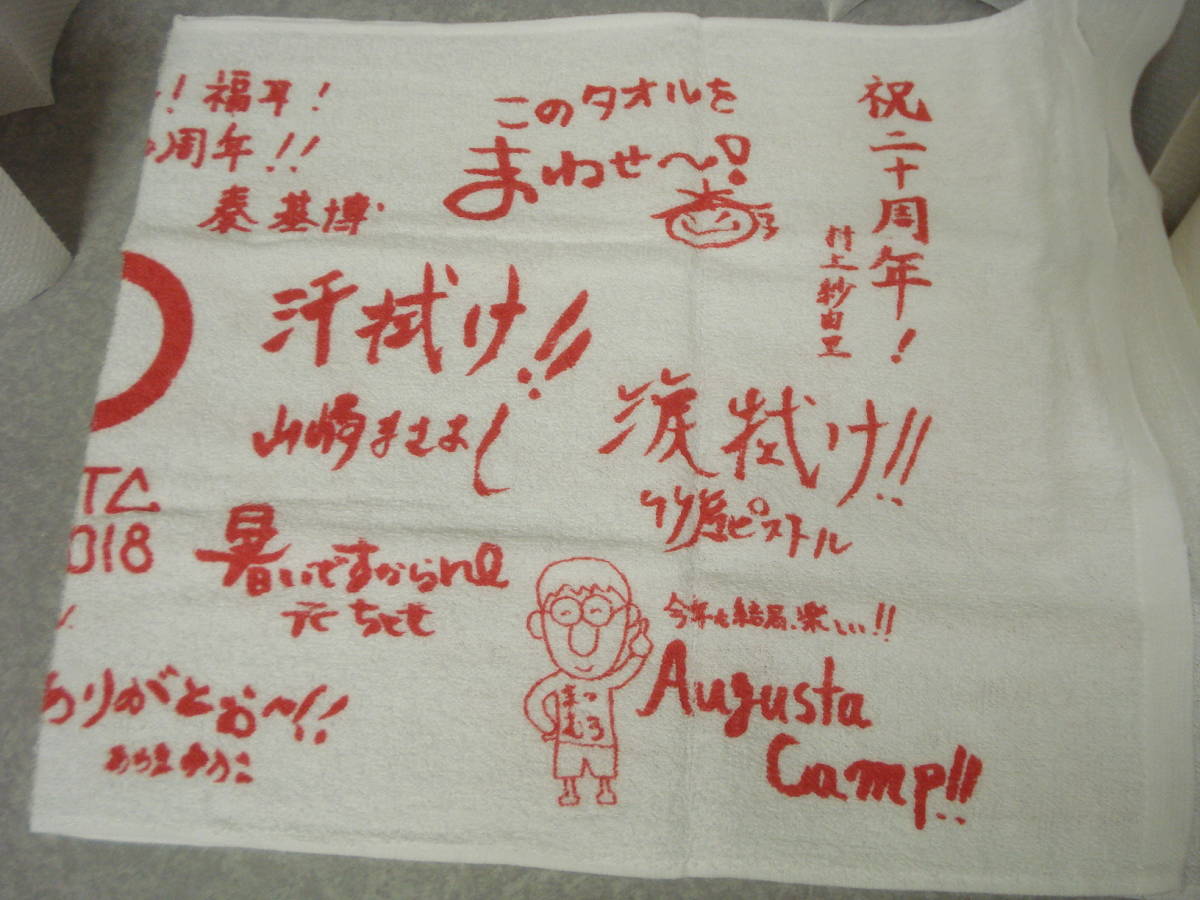 ！福耳！
周年！！
秦基博
このタオルを
まわせ～！
祝二十周年！
村上紗由里
汗拭け！！
山崎まさよし
涙拭け！！
竹原ピストル
TC
018
暑いですからne
元ちとせ
ありがとお～！！
あらきゆうこ
まつ
むろ
今年も結局、楽しい！！
Augusta
Camp!!